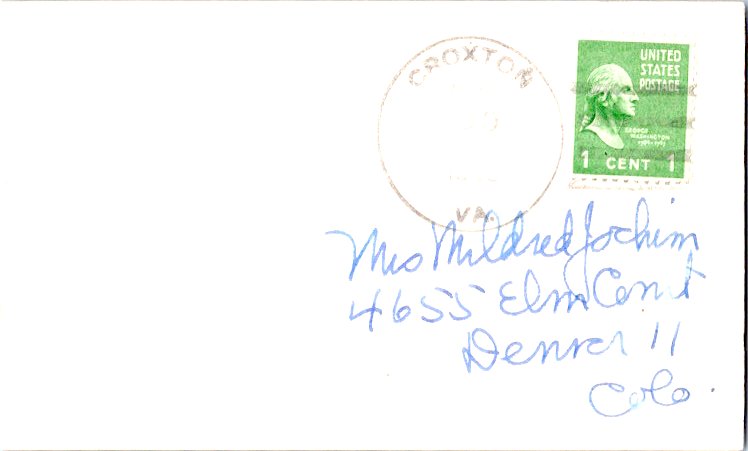 CROXTON
VA.
UNITED
STATES
POSTAGE
GEORGE
WASHINGTON
1 CENT 1
Mrs Mildred Jochim
4655 Elm Court
Denver 11
Colo.